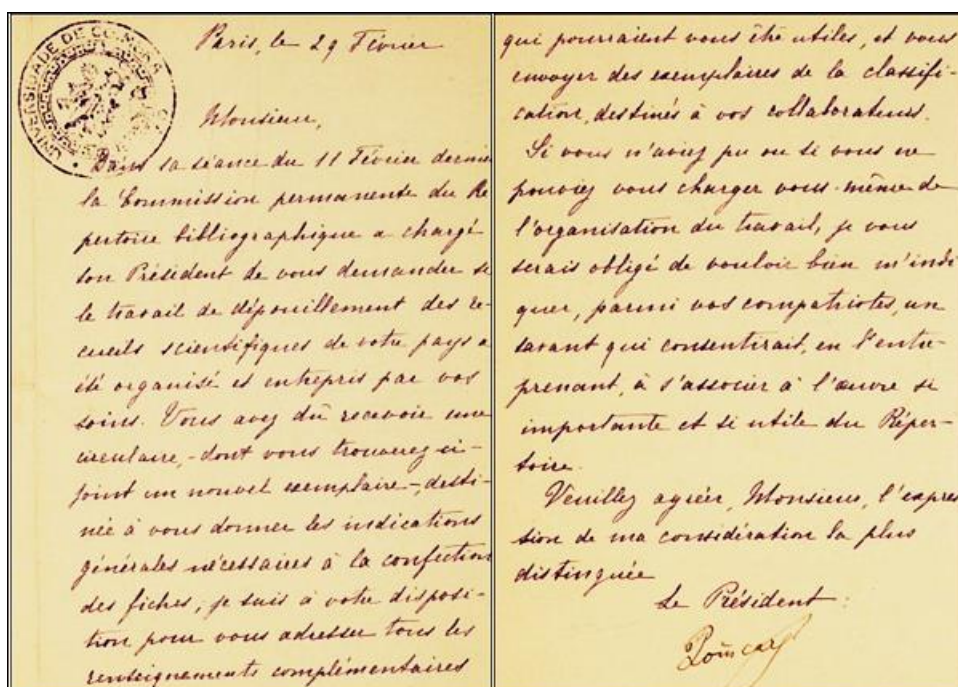 UNIVERSIDADE DE COIMBRA
Paris, le 29 Février
Monsieur,
Dans sa séance du 11 Février dernier
la Commission permanente du Ré
pertoire bibliographique a chargé
son Président de vous demander si
le travail de dépouillement des re-
cueils scientifiques de votre pays a
été organisé et entrepris par vos
soins. Vous avez dû recevoir une
circulaire, - dont vous trouverez ci-
joint un nouvel exemplaire -, desti-
née à vous donner les indications
générales nécessaires à la confection
des fiches; je suis à votre disposi-
tion pour vous adresser tous les
renseignements complémentaires
qui pourraient vous être utiles, et vous
envoyer des exemplaires de la classifi-
cation, destinés à vos collaborateurs.
Si vous n'aviez pu ou si vous ne
pouviez vous charger vous-même de
l'organisation du travail, je vous
serais obligé de vouloir bien m'indi
quer, parmi vos compatriotes, un
savant qui consentirait, en l'entre-
prenant, à s'associer à l'œuvre si
importante et si utile du Réper-
toire.
Veuillez agréer, Monsieur, l'expres
sion de ma considération la plus
distinguée
Le Président:
Poincaré